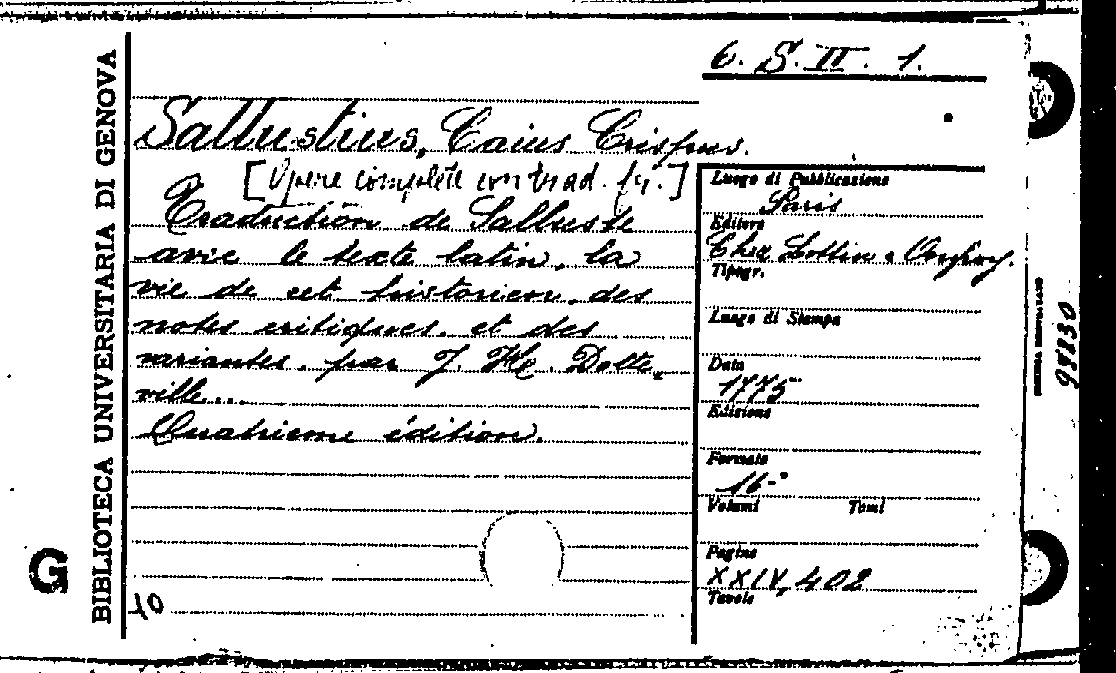 6. S. II. 1.
Sallustius, Caius Crispus.
[Opere complete con trad. fr.]
Traduction de Salluste
avec le texte latin, la
vie de cet historien, des
notes critiques, et des
variantes, par J. H. Dotte-
ville...
Quatrieme édition.
10
Luogo di Pubblicazione
Paris
Editore
Chez Lottin
Tipogr.
Luogo di Stampa
Data
1775
Edizione
Formato
16°
Volumi Tomi
Pagine
XXIV, 402
Tavole
BIBLIOTECA UNIVERSITARIA DI GENOVA
G
98230